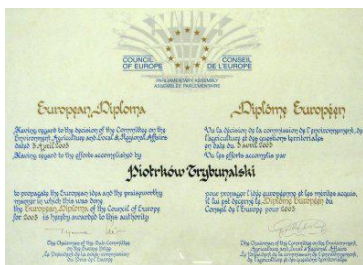 COUNCIL OF EUROPE
CONSEIL DE L'EUROPE
PARLIAMENTARY ASSEMBLY
ASSEMBLÉE PARLEMENTAIRE
European Diploma
Having regard to the decision of the Committee on the
Environment, Agriculture and Local & Regional Affairs
dated 5 April 2003
Having regard to the efforts accomplished by
Diplôme Européen
Vu la décision de la commission de l'environnement, de
l'agriculture et des questions territoriales
en date du 5 avril 2003
Vu les efforts accomplis par
Piotrków Trybunalski
to propagate the European idea and the praiseworthy
manner in which this was done
the European Diploma of the Council of Europe
for 2003 is hereby awarded to this authority
pour propager l'idée européenne et les mérites acquis,
il lui est décerné le Diplôme Européen du
Conseil de l'Europe pour 2003
The Chairman of the Sub-Committee
on the Europe Prize
Le Président de la sous-commission
du Prix de l'Europe
The Chairman of the Committee on the Environment,
Agriculture and Local & Regional Affairs
Le Président de la commission de l'environnement,
de l'agriculture et des questions territoriales